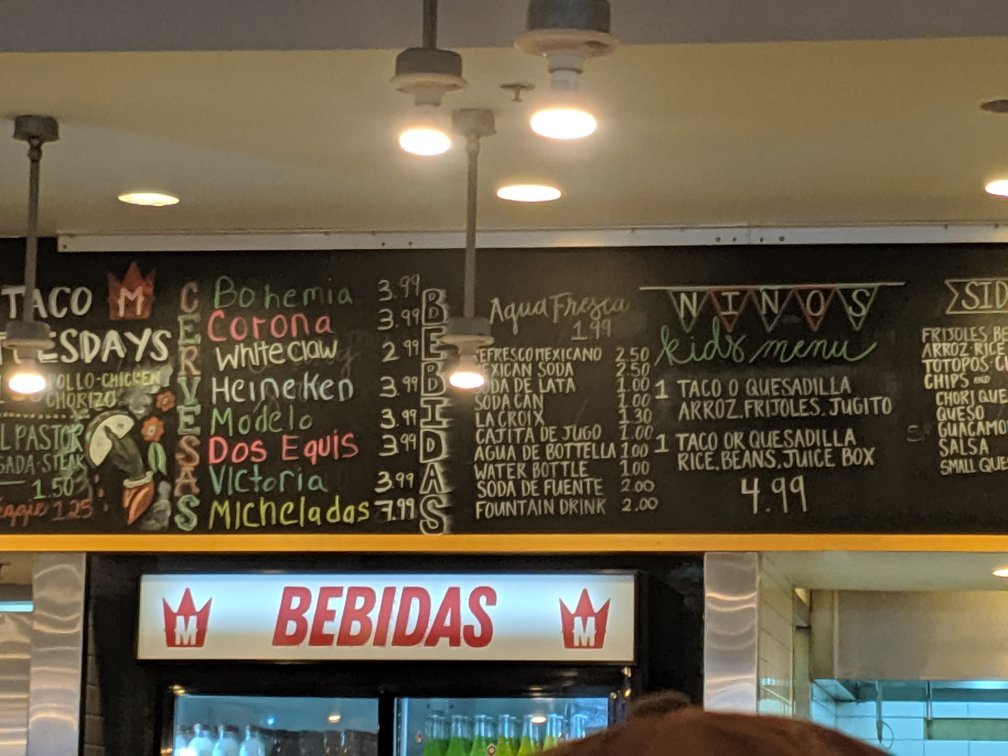 TACO M
TUESDAYS
POLLO-CHICKEN
CHORIZO
AL PASTOR
ASADA-STEAK
1.50
Veggie 1.25
CERVESAS
Bohemia 3.99
Corona 3.99
White Claw 2.99
Heineken 3.99
Modelo 3.99
Dos Equis 3.99
Victoria 3.99
Micheladas 7.99
BEBIDAS
Aqua Fresca
1.99
REFRESCO MEXICANO 2.50
MEXICAN SODA 2.50
SODA DE LATA 1.00
SODA CAN 1.00
LA CROIX 1.30
CAJITA DE JUGO 1.00
AGUA DE BOTTELLA 1.00
WATER BOTTLE 1.00
SODA DE FUENTE 2.00
FOUNTAIN DRINK 2.00
NINOS
kids menu
1 TACO O QUESADILLA
ARROZ, FRIJOLES, JUGITO
1 TACO OR QUESADILLA
RICE, BEANS, JUICE BOX
4.99
SID
FRIJOLES BE
ARROZ RICE
TOTOPOS-C
CHIPS AND
CHORI QUE
QUESO
GUACAMO
SALSA
SMALL QUE
M BEBIDAS M